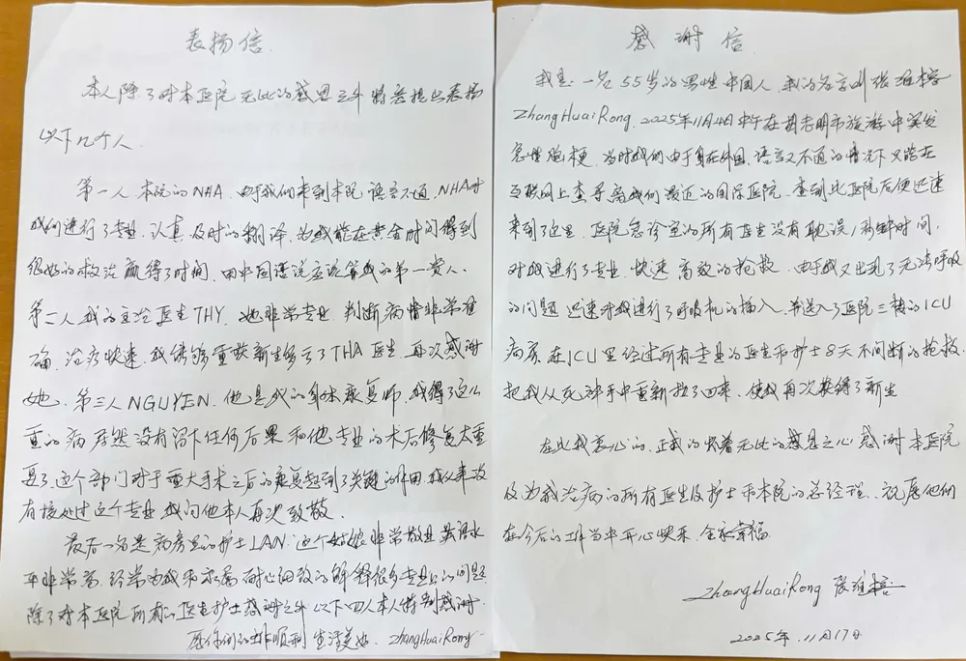 表扬信
本人除了对本医院无比的感恩之外 特意提出表扬
以下几个人.
第一人 本院的NHA. 由于我们来到本院, 语言不通, NHA对
我们进行了专业, 认真及时的翻译, 为我能在黄金时间得到
很好的救治赢得了时间. 由中国话说应该算我的第一贵人.
第二人 我的主治医生THY. 她非常专业 判断病情非常准
确. 治疗快速. 我能够重获新生多亏了THA医生 再次感谢
她. 第三人NGUYEN. 他是我的身体康复师. 我得了这么
重的病 居然没有留下任何后果 和他专业的术后修复太重
要了, 这个部门对于重大手术之后的康复起到了关键的作用. 我从来没
有接触过这个专业 我向他本人再次致敬.
最后一名是病房里的护士LAN. 这个姑娘非常敬业 英语水
平非常高. 经常为我和家属耐心细致的解释很多专业上的问题
除了对本医院所有的医生护士感谢之外 以下四人本人特别感谢.
愿你们工作顺利 生活美好. ZhangHuaiRong
感谢信
我是 一名55岁的男性中国人. 我的名字叫张怀榕
ZhangHuaiRong. 2025年11月4日中午在胡志明市旅游中突发
急性脑梗. 当时我们由于身在外国, 语言又不通的情况下 只能在
互联网上查寻离我们最近的国际医院. 查到此医院后便迅速
来到了这里. 医院急诊室的所有医生没有耽误1秒钟时间.
对我进行了专业. 快速 高效的抢救. 由于我又出现了无法呼吸
的问题 迅速对我进行了呼吸机的插入. 并送入了医院三楼的ICU
病房. 在ICU里经过所有专业的医生和护士8天不间断的抢救.
把我从死神手中重新拉了回来. 使我再次获得了新生
在此我衷心的. 正式的怀着无比的感恩之心 感谢本医院
及为我治病的所有医生及护士和本院的总经理. 祝愿他们
在今后的工作当中开心快乐. 全家幸福.
ZhangHuaiRong 张怀榕
2025年. 11月17日